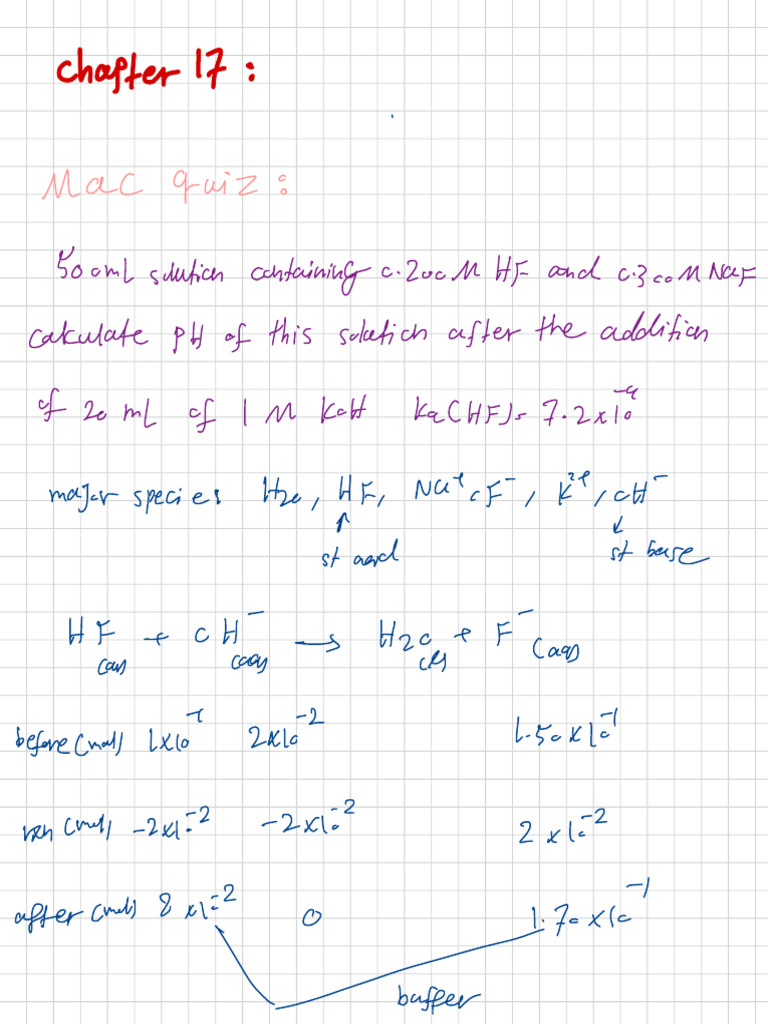 chapter 17:
Mac quiz:
500mL solution containing 0.200 M HF and 0.300 M NaF
calculate pH of this solution after the addition
of 20 mL of 1 M KOH Ka(HF)= 7.2x10⁻⁴
major species H2O, HF, Na⁺, F⁻, K²⁺, OH⁻
st acid st base
HF + OH⁻ → H2O + F⁻
(aq) (aq) (l) (aq)
before (mol) 1x10⁻¹ 2x10⁻² 1.50x10⁻¹
rxn (mol) -2x10⁻² -2x10⁻² 2x10⁻²
after (mol) 8x10⁻² 0 1.70x10⁻¹
buffer